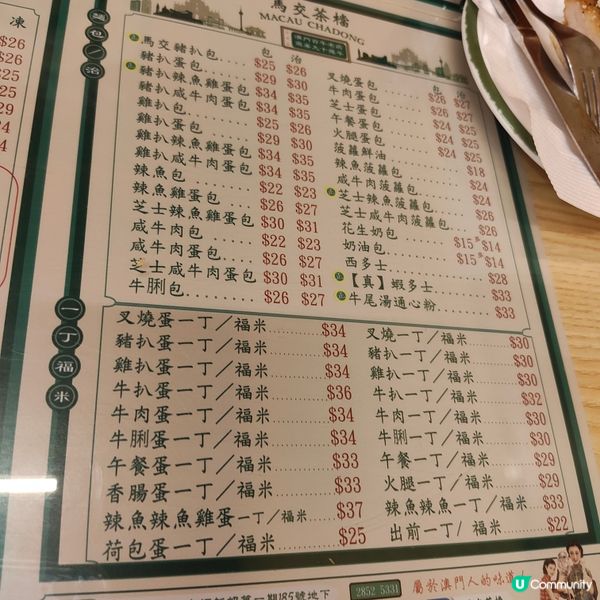 馬交茶檔
MACAU CHADONG
凍
$26
$26
麵包/治
包 治
馬交豬扒包 $25 $26
豬扒蛋包 $29 $30
豬扒辣魚雞蛋包 $34 $35
豬扒咸牛肉蛋包 $34 $35
雞扒包 $25 $26
雞扒蛋包 $29 $30
雞扒辣魚雞蛋包 $34 $35
雞扒咸牛肉蛋包 $34 $35
辣魚包 $22 $23
辣魚雞蛋包 $26 $27
芝士辣魚雞蛋包 $30 $31
咸牛肉包 $22 $23
咸牛肉蛋包 $26 $27
芝士咸牛肉蛋包 $30 $31
牛脷包 $26 $27
包 治
叉燒蛋包 $26 $27
牛肉蛋包 $26 $27
芝士蛋包 $24 $25
午餐蛋包 $24 $25
火腿蛋包 $24 $25
菠蘿鮮油 $18
辣魚菠蘿包 $24
咸牛肉菠蘿包 $24
芝士辣魚菠蘿包 $26
芝士咸牛肉菠蘿包 $26
花生奶包 $15 $14
奶油包 $15 $14
西多士 $28
【真】蝦多士 $33
牛尾湯通心粉 $33
一丁福米
叉燒蛋一丁/福米 $34
豬扒蛋一丁/福米 $34
雞扒蛋一丁/福米 $34
牛扒蛋一丁/福米 $36
牛肉蛋一丁/福米 $34
牛脷蛋一丁/福米 $34
午餐蛋一丁/福米 $33
香腸蛋一丁/福米 $33
辣魚辣魚雞蛋一丁/福米 $37
荷包蛋一丁/福米 $25
叉燒一丁/福米 $30
豬扒一丁/福米 $30
雞扒一丁/福米 $30
牛扒一丁/福米 $32
牛肉一丁/福米 $30
牛脷一丁/福米 $30
午餐一丁/福米 $29
火腿一丁/福米 $29
辣魚辣魚一丁/福米 $33
出前一丁/福米 $22
一期185號地下
2852 5331
屬於澳門人的味道
U Community